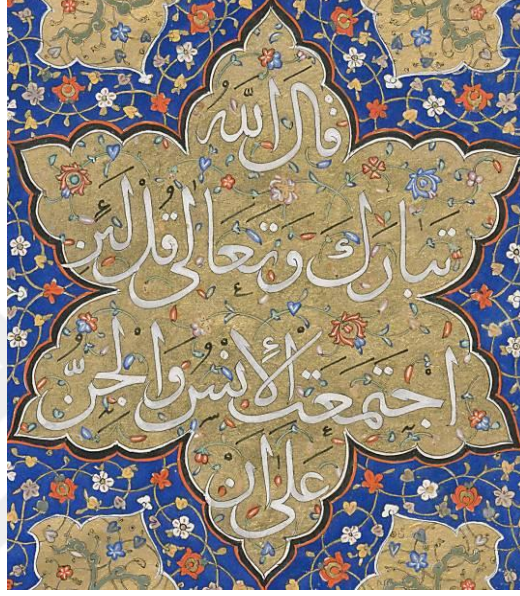 قَالَ اللّٰهُ
تَبَارَكَ وَتَعَالٰى قُل لَئِنِ
اجْتَمَعَتِ الْإِنْسُ وَالْجِنُّ
عَلٰى أَنْ